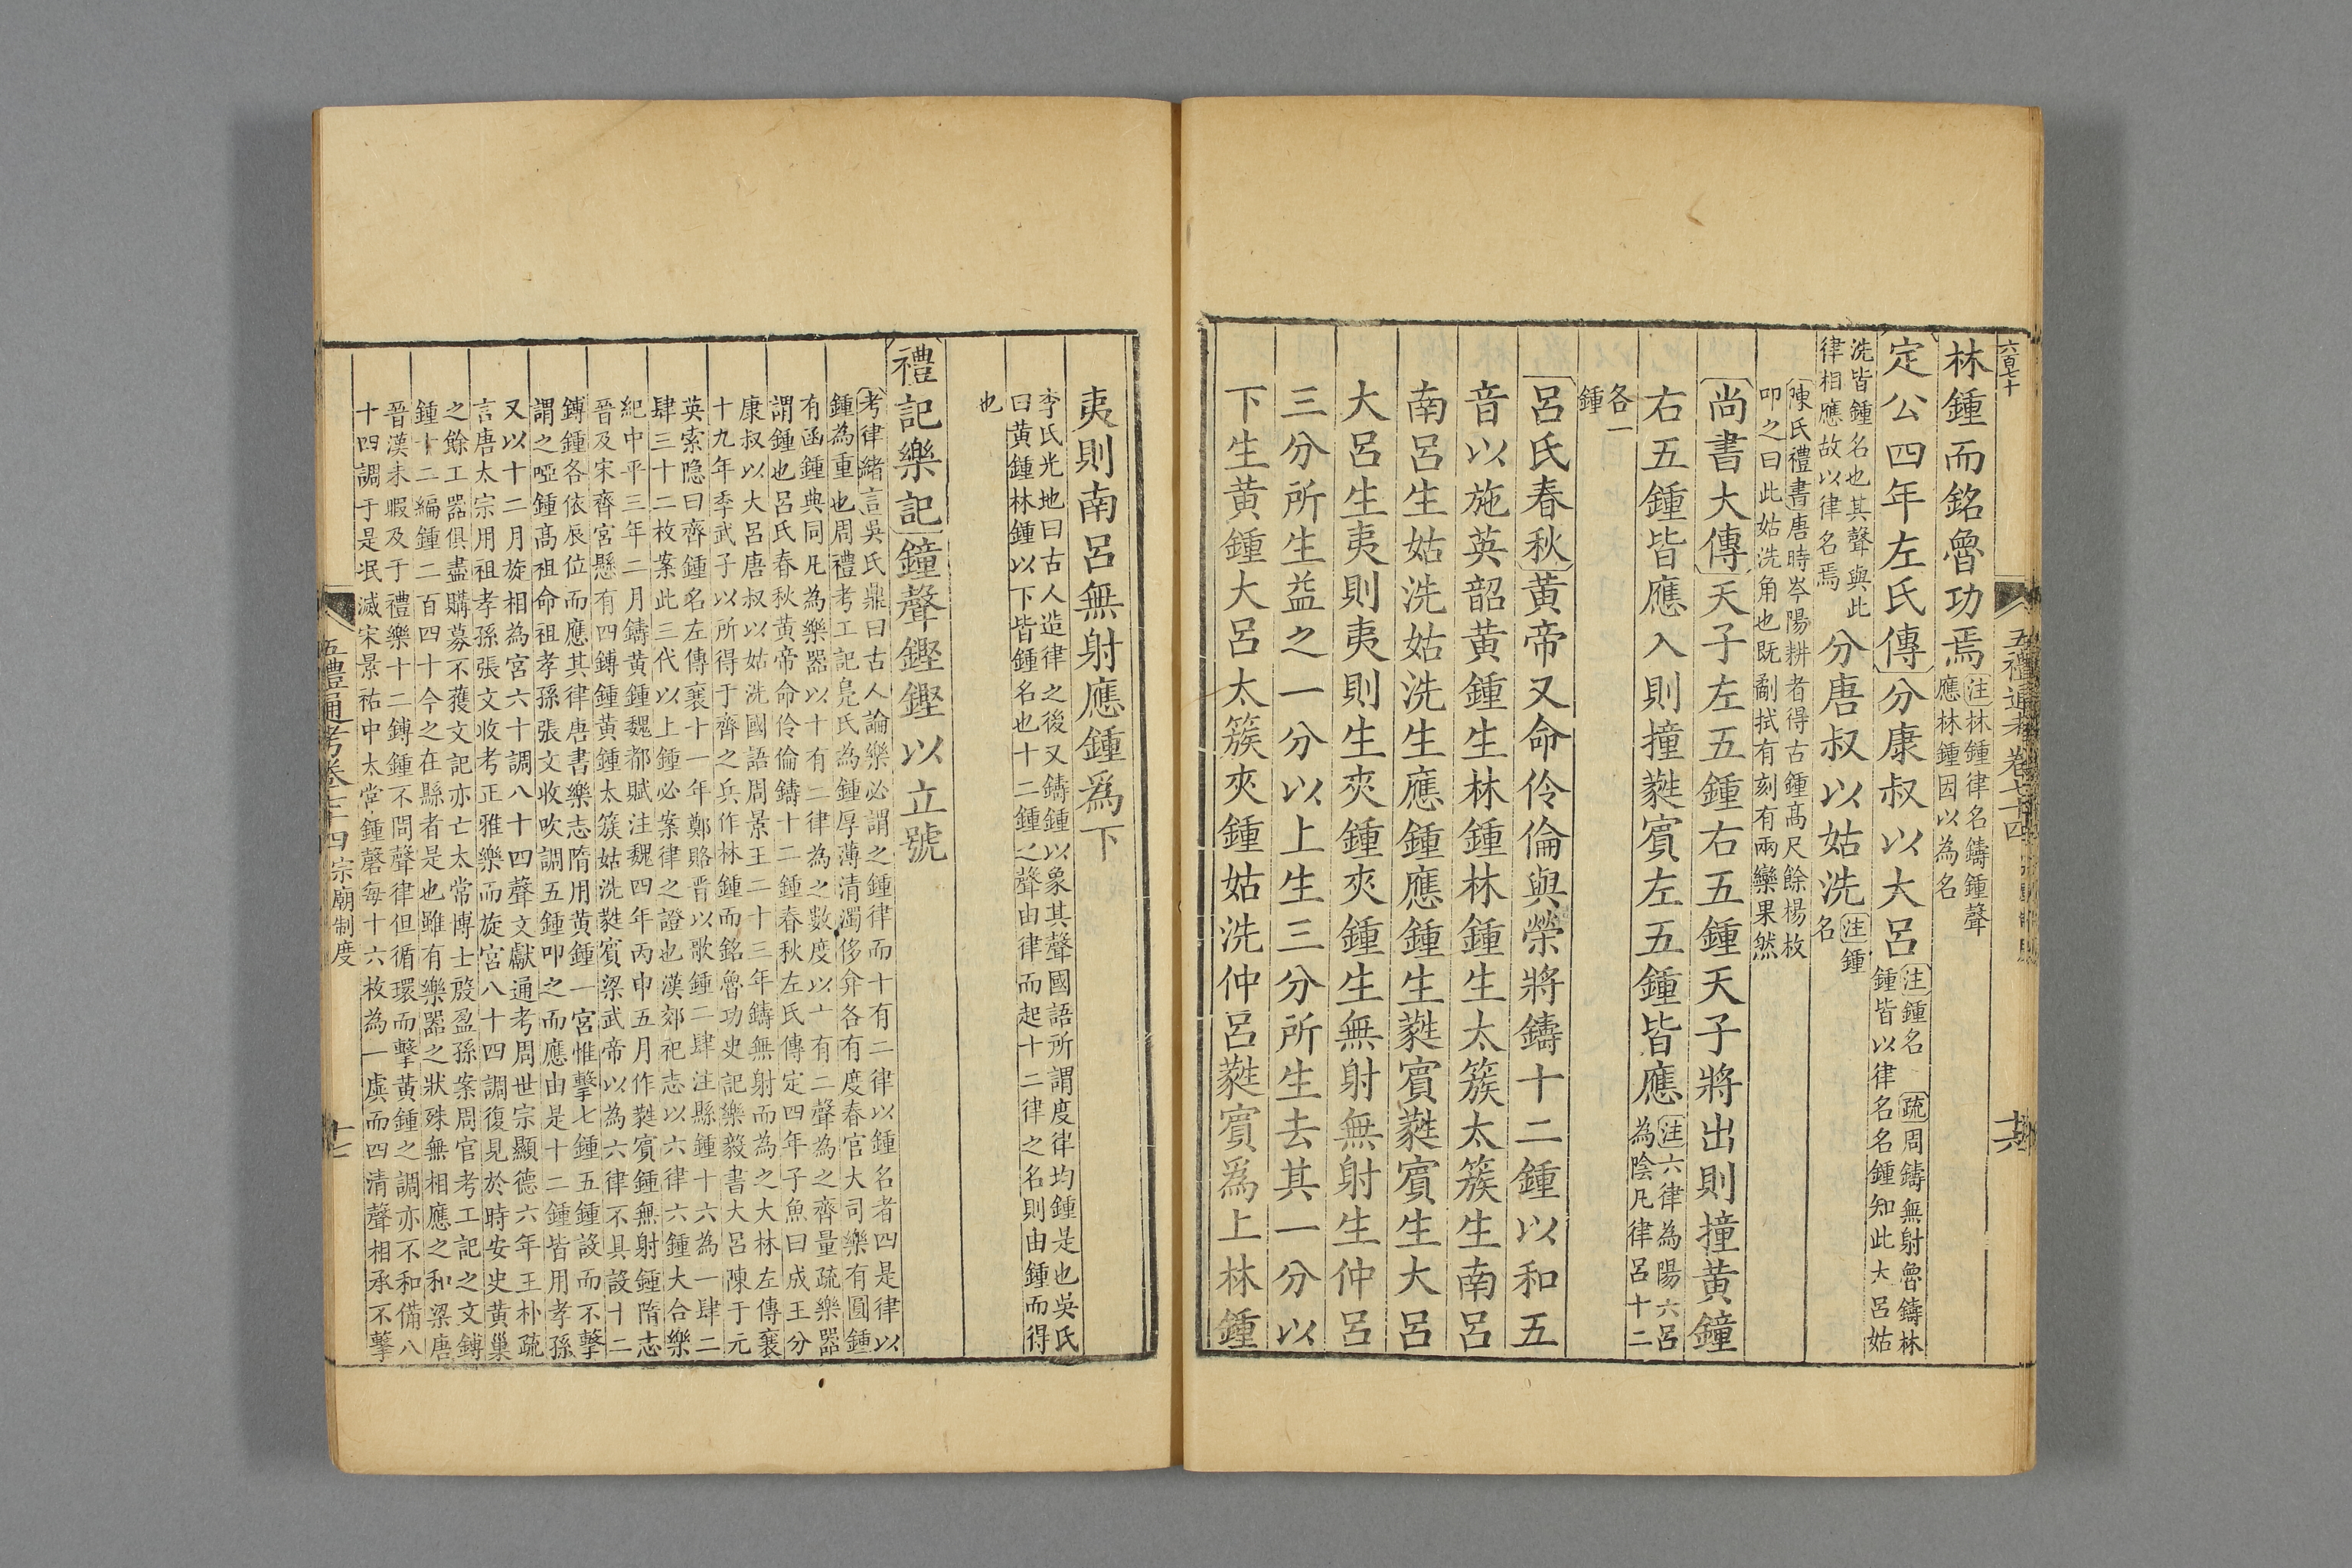 六百七十
五禮通考卷七十四
十六
林鍾而銘魯功焉注林鍾律名鑄鍾聲應林鍾因以為名
定公四年左氏傳分康叔以大呂注鍾名 疏周鑄無射魯鑄林鍾皆以律名名鍾知此大呂姑
洗皆鍾名也其聲與此律相應故以律名焉分唐叔以姑洗注鍾名
陳氏禮書唐時岑陽耕者得古鍾高尺餘楊枚叩之曰此姑洗角也既劀拭有刻有兩欒果然
尚書大傳天子左五鍾右五鍾天子將出則撞黃鐘
右五鍾皆應入則撞蕤賓左五鍾皆應注六律為陽六呂為陰凡律呂十二
各一鍾
呂氏春秋黃帝又命伶倫與榮將鑄十二鍾以和五
音以施英韶黃鍾生林鍾林鍾生太簇太簇生南呂
南呂生姑洗姑洗生應鍾應鍾生蕤賓蕤賓生大呂
大呂生夷則夷則生夾鍾夾鍾生無射無射生仲呂
三分所生益之一分以上生三分所生去其一分以
下生黃鍾大呂太簇夾鍾姑洗仲呂蕤賓爲上林鍾
夷則南呂無射應鍾爲下
李氏光地曰古人造律之後又鑄鍾以象其聲國語所謂度律均鍾是也吳氏
曰黃鍾林鍾以下皆鍾名也十二鍾之聲由律而起十二律之名則由鍾而得
也
禮記樂記鐘聲鏗鏗以立號
考律緒言吳氏鼎曰古人論樂必謂之鍾律而十有二律以鍾名者四是律以
鍾為重也周禮考工記鳧氏為鍾厚薄清濁侈弇各有度春官大司樂有圜鍾
有函鍾典同凡為樂器以十有二律為之數度以十有二聲為之齊量疏樂器
謂鍾也呂氏春秋黃帝命伶倫鑄十二鍾春秋左氏傳定四年子魚曰成王分
康叔以大呂唐叔以姑洗國語周景王二十三年鑄無射而為之大林左傳襄
十九年季武子以所得于齊之兵作林鍾而銘魯功史記樂毅書大呂陳于元
英索隱曰齊鍾名左傳襄十一年鄭賂晉以歌鍾二肆注縣鍾十六為一肆二
肆三十二枚案此三代以上鍾必案律之證也漢郊祀志以六律六鍾大合樂
紀中平三年二月鑄黃鍾魏都賦注魏四年丙申五月作蕤賓鍾無射鍾隋志
晉及宋齊宮懸有四鎛鍾黃鍾太簇姑洗蕤賓梁武帝以為六律不具設十二
鎛鍾各依辰位而應其律唐書樂志隋用黃鍾一宮惟擊七鍾五鍾設而不擊
謂之啞鍾高祖命祖孝孫張文收吹調五鍾叩之而應由是十二鍾皆用孝孫
又以十二月旋相為宮六十調八十四聲文獻通考周世宗顯德六年王朴疏
言唐太宗用祖孝孫張文收考正雅樂而旋宮八十四調復見於時安史黃巢
之餘工器俱盡購募不獲文記亦亡太常博士殷盈孫案周官考工記之文鎛
鍾十二編鍾二百四十今之在縣者是也雖有樂器之狀殊無相應之和梁唐
晉漢未暇及于禮樂十二鎛鍾不問聲律但循環而擊黃鍾之調亦不和備八
十四調于是泯滅宋景祐中太常鍾磬每十六枚為一虡而四清聲相承不擊
五禮通考卷七十四宗廟制度
十七